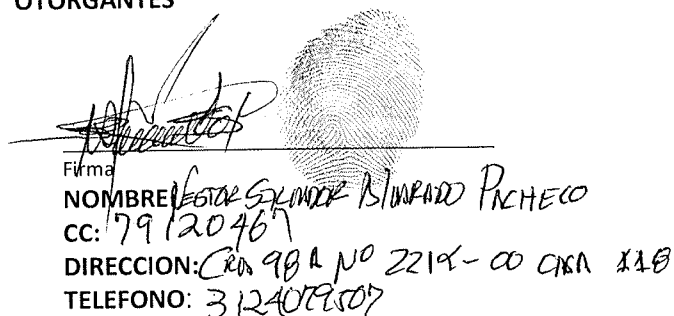 OTORGANTES
Firma
NOMBRE NESTOR SALVADOR ALVARADO PACHECO
CC: 79120467
DIRECCION: CRA 98A Nº 221A-00 CASA 118
TELEFONO: 3124079507